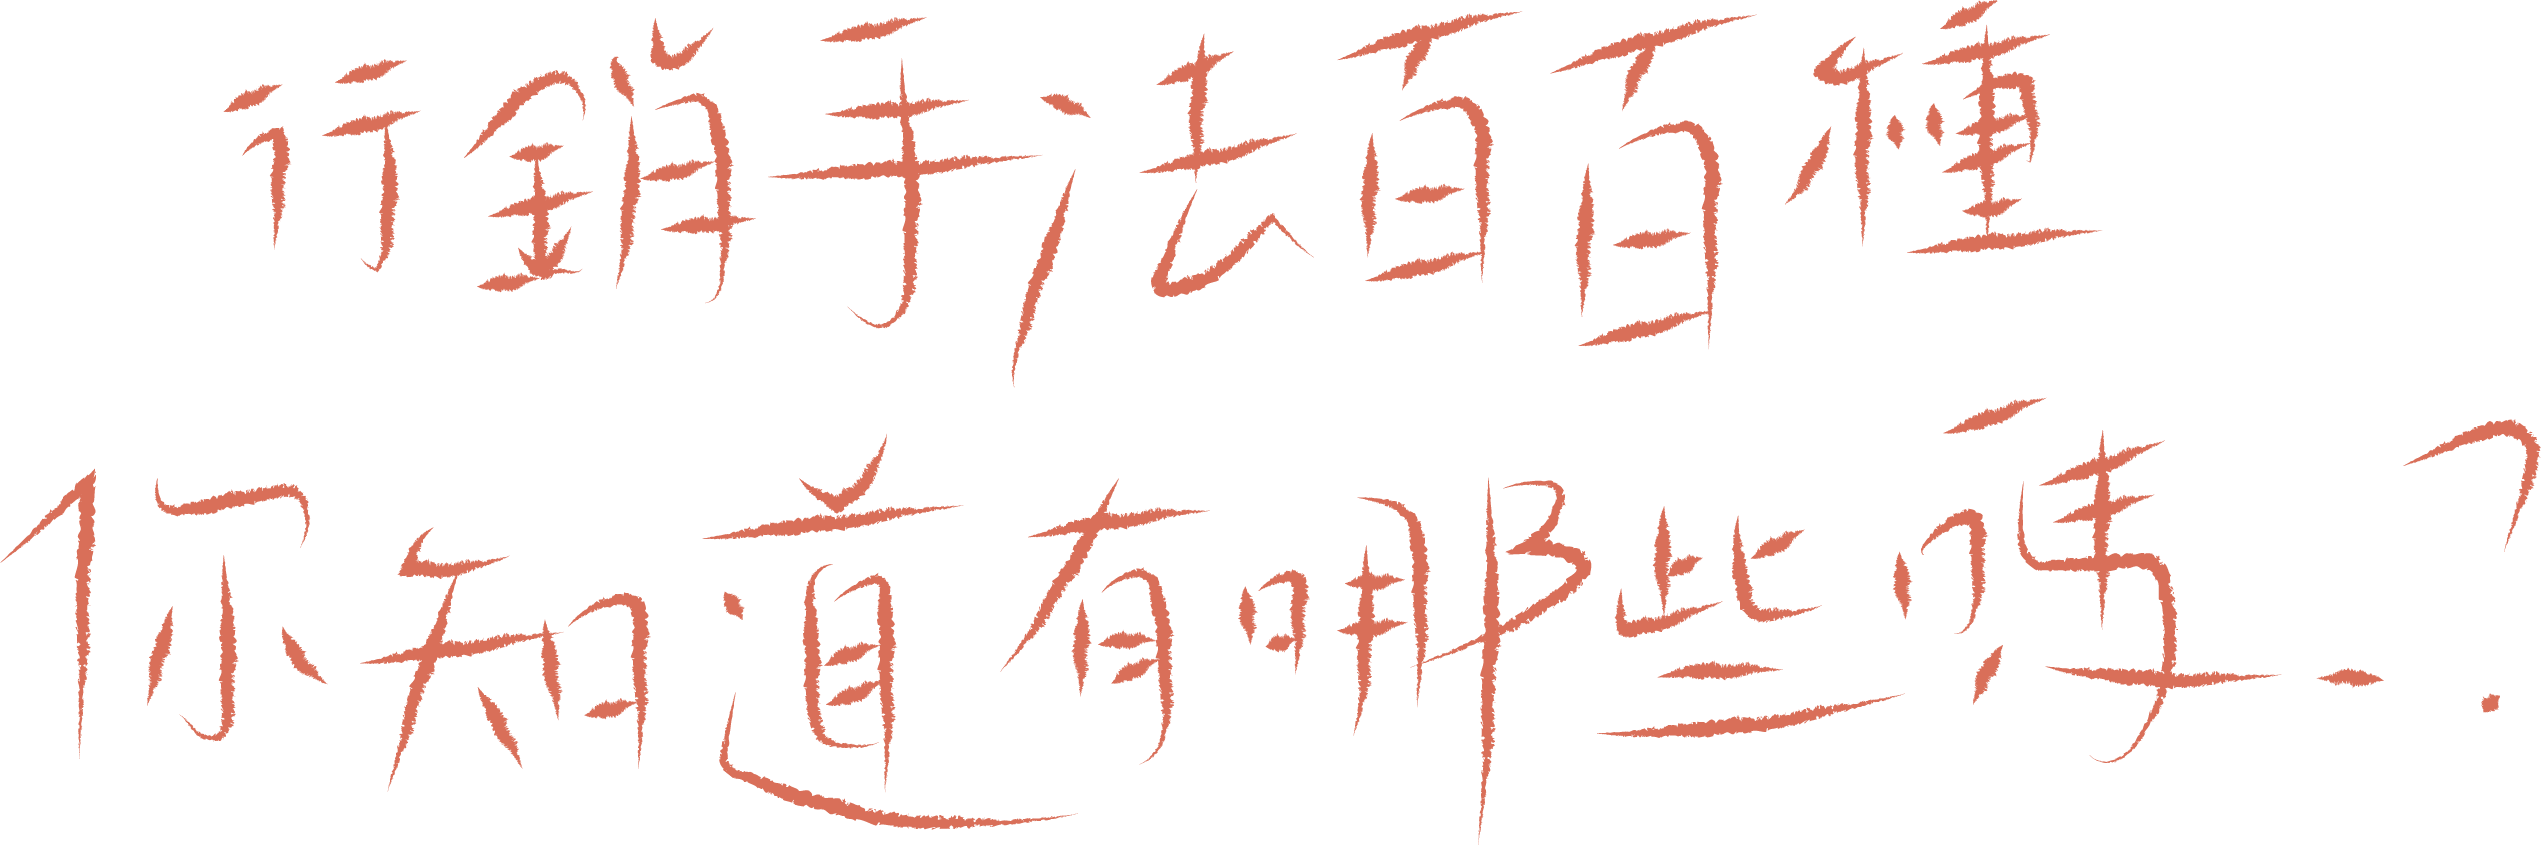 行銷手法百百種
你知道有哪些嗎?